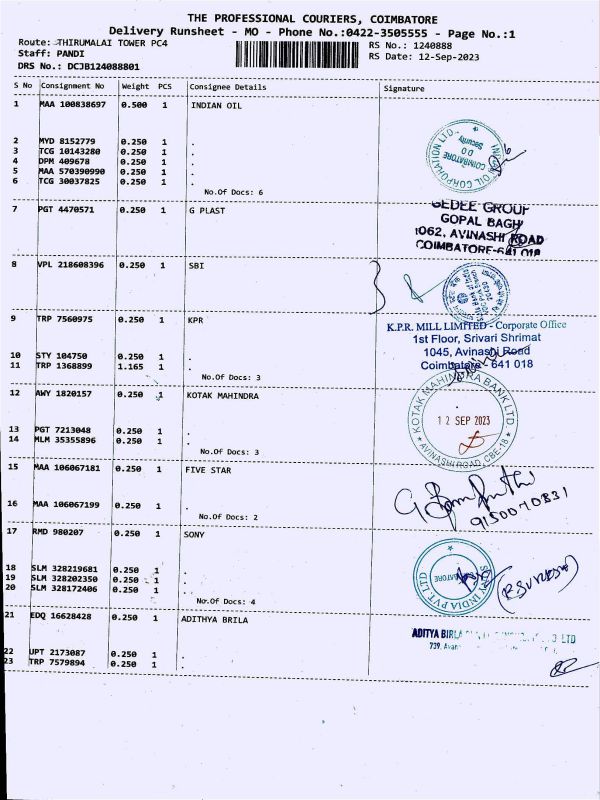 THE PROFESSIONAL COURIERS, COIMBATORE
Delivery Runsheet - MO - Phone No.:0422-3505555 - Page No.:1
Route: THIRUMALAI TOWER PC4
RS No.: 1240888
Staff: PANDI
RS Date: 12-Sep-2023
DRS No.: DCJB124088801
S No Consignment No Weight PCS Consignee Details Signature
1 MAA 100838697 0.500 1 INDIAN OIL
2 MYD 8152779 0.250 1 .
3 TCG 10143280 0.250 1 .
4 DPM 409678 0.250 1 .
5 MAA 570390990 0.250 1 .
6 TCG 30037825 0.250 1 .
No.Of Docs: 6
OIL CORPORATION LTD.
COIMBATORE
Security
7 PGT 4470571 0.250 1 G PLAST
GEDEE GROUP
GOPAL BAGH
1062, AVINASHI ROAD
COIMBATORE-641 018
8 VPL 218608396 0.250 1 SBI
9 TRP 7560975 0.250 1 KPR
10 STY 104750 0.250 1 .
11 TRP 1368899 1.165 1 .
No.Of Docs: 3
K.P.R. MILL LIMITED - Corporate Office
1st Floor, Srivari Shrimat
1045, Avinashi Road
Coimbatore - 641 018
12 AWY 1820157 0.250 1 KOTAK MAHINDRA
13 PGT 7213048 0.250 1 .
14 MLM 35355896 0.250 1 .
No.Of Docs: 3
KOTAK MAHINDRA BANK LTD.
12 SEP 2023
AVINASHI ROAD, CBE-18
15 MAA 106067181 0.250 1 FIVE STAR
16 MAA 106067199 0.250 1 .
No.Of Docs: 2
17 RMD 980207 0.250 1 SONY
18 SLM 328219681 0.250 1 .
19 SLM 328202350 0.250 1 .
20 SLM 328172406 0.250 1 .
No.Of Docs: 4
SONY INDIA PVT. LTD
21 EDQ 16628428 0.250 1 ADITHYA BRILA
22 UPT 2173087 0.250 1 .
23 TRP 7579894 0.250 1 .
ADITYA BIRLA
LTD